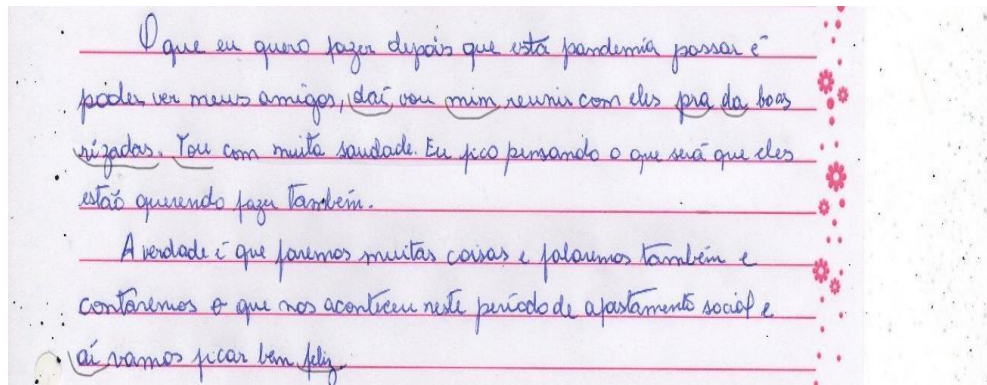 O que eu quero fazer depois que esta pandemia passar é
poder ver meus amigos, daí vou mim reunir com eles pra da boas
rizadas. Tou com muita saudade. Eu fico pensando o que será que eles
estão querendo fazer também.
A verdade é que faremos muitas coisas e falaremos também e
contaremos o que nos aconteceu neste período de afastamento social e
aí vamos ficar bem feliz.